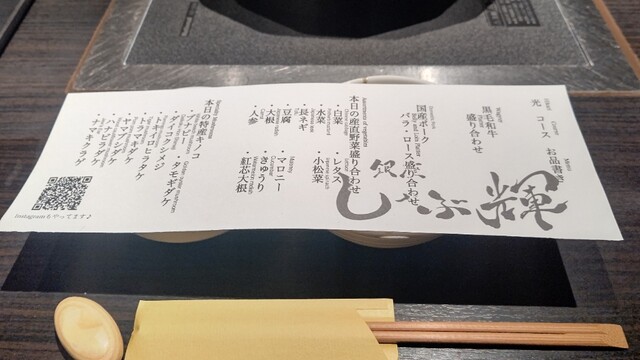 光 コース お品書き
黒毛和牛
盛り合わせ
国産ポーク
バラ・ロース盛り合わせ
本日の産直野菜盛り合わせ
・白菜 ・レタス
・水菜 ・小松菜
・長ネギ
・豆腐 ・マロニー
・大根 ・きゅうり
・人参 ・紅芯大根
本日の特産キノコ
・ブナピー ・タモギダケ
・ダイコクシメジ
・トキイロヒラタケ
・トラマキダケ
・ヤマブシダケ
・ハナビラダケ
・ナマキクラゲ
銀座
しゃぶ輝
Instagramもやってます♪